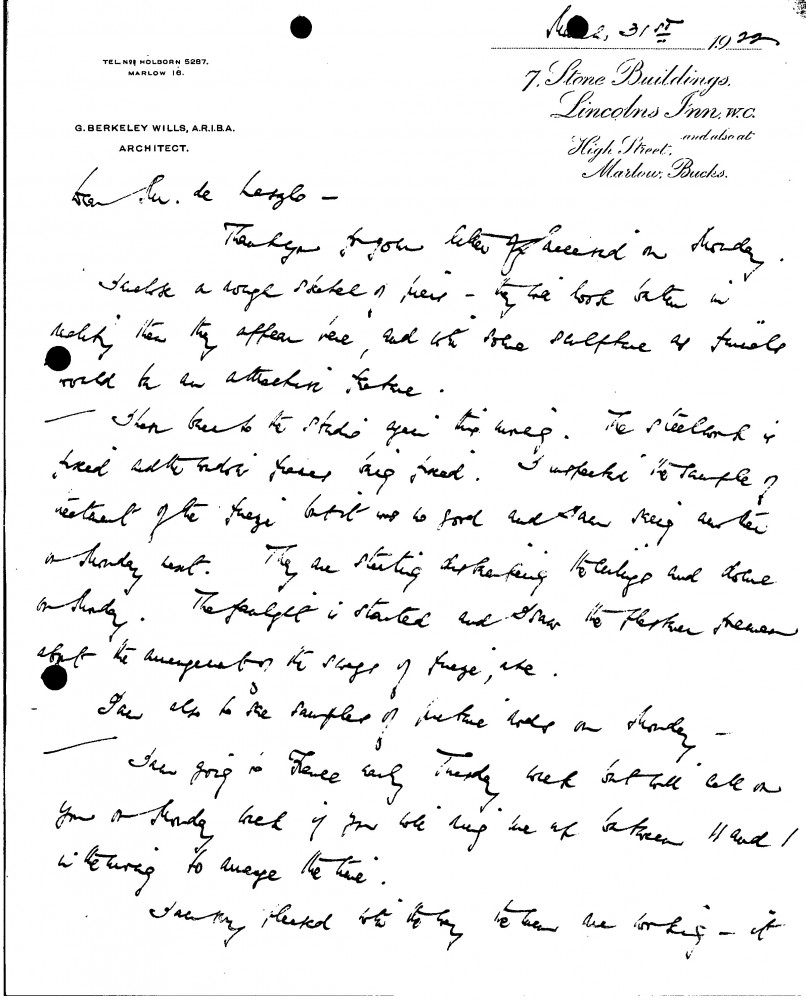 March, 31st 1922
TEL. Nos HOLBORN 5287.
MARLOW 16.
7, Stone Buildings,
Lincolns Inn, W.C.
and also at
High Street,
Marlow, Bucks.
G. BERKELEY WILLS, A.R.I.B.A.
ARCHITECT.
Dear Mr. de Laszlo –
Thank you for your letter received on Monday.
I enclose a rough sketch of piers – they will look better in
reality than they appear here, and with some sculpture as finials
would be an attractive feature.
I have been to the studio again this morning. The steelwork is
fixed and the window frames being fixed. I inspected the sample of
treatment of the frieze but it was no good and I am seeing another
on Monday next. They are starting distempering the ceilings and dome
on Monday. The is started and I saw the plasterer foreman
about the arrangement of the swags of frieze, etc.
I am also to see samples of picture rods on Monday –
I am going to France early Tuesday week but will call on
you on Monday week if you will ring me up between 11 and 1
in the morning to arrange the time.
I am very pleased with the way the men are working – it